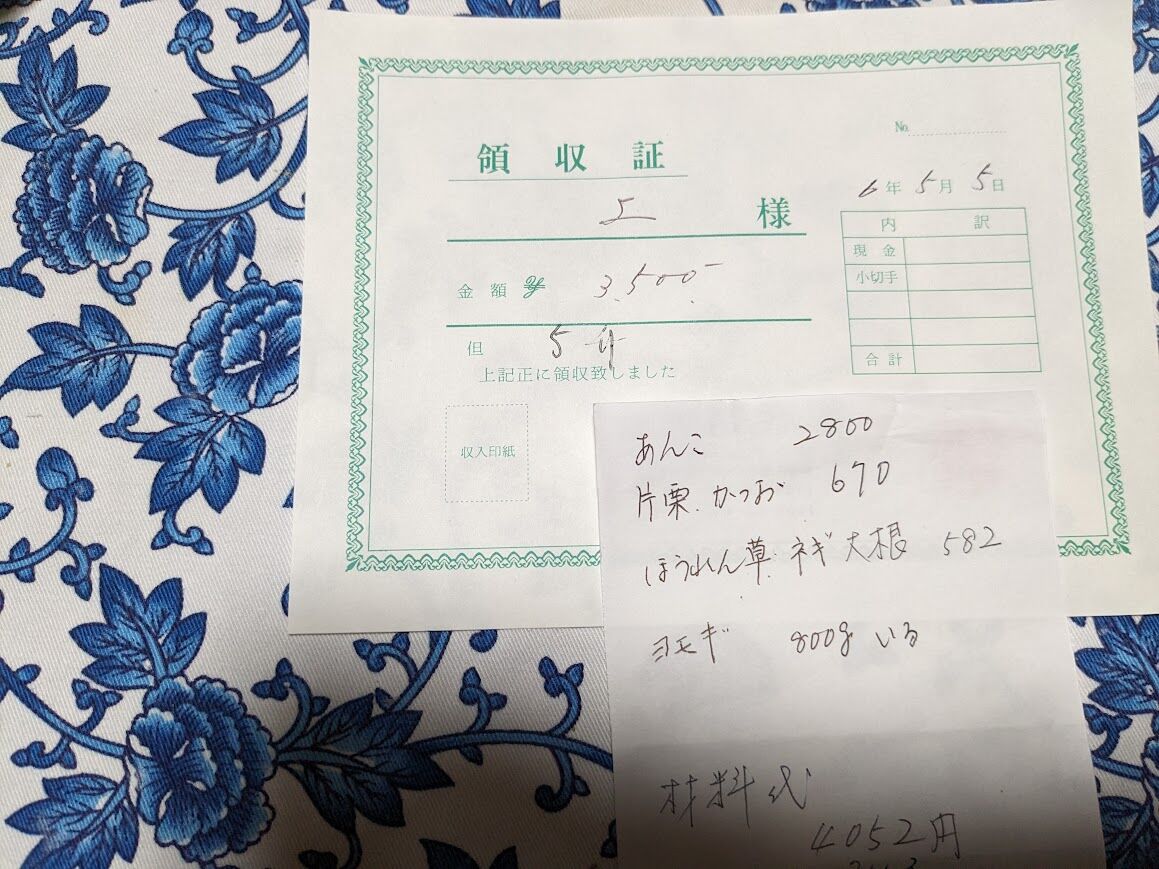 領収証
No.
6年 5月 5日
上 様
内訳
現金
小切手
合計
金額 ¥ 3,500-
但 5升
上記正に領収致しました
収入印紙
あんこ 2800
片栗.かつお 670
ほうれん草.ネギ大根 582
ヨモギ 800g いる
材料代
4052円